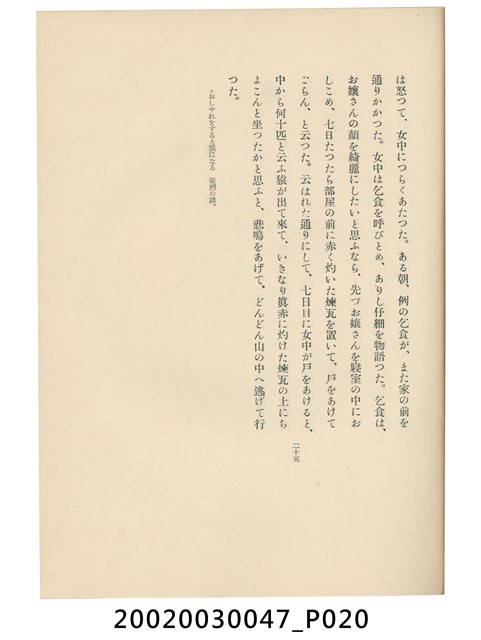 は怒つて、女中につらくあたつた。ある朝、例の乞食が、また家の前を
通りかかつた。女中は乞食を呼びとめ、ありし仔細を物語つた。乞食は、
お孃さんの顔を綺麗にしたいと思ふなら、先づお孃さんを寢室の中にお
しこめ、七日たつたら部屋の前に赤く灼いた煉瓦を置いて、戸をあけて
ごらん、と云つた。云はれた通りにして、七日目に女中が戸をあけると、
中から何十匹と云ふ猿が出て來て、いきなり眞赤に灼けた煉瓦の上にち
よこんと坐つたかと思ふと、悲鳴をあげて、どんどん山の中へ逃げて行
つた。
おしやれをすると猿になる 臺灣の諺。
二十五
20020030047_P020